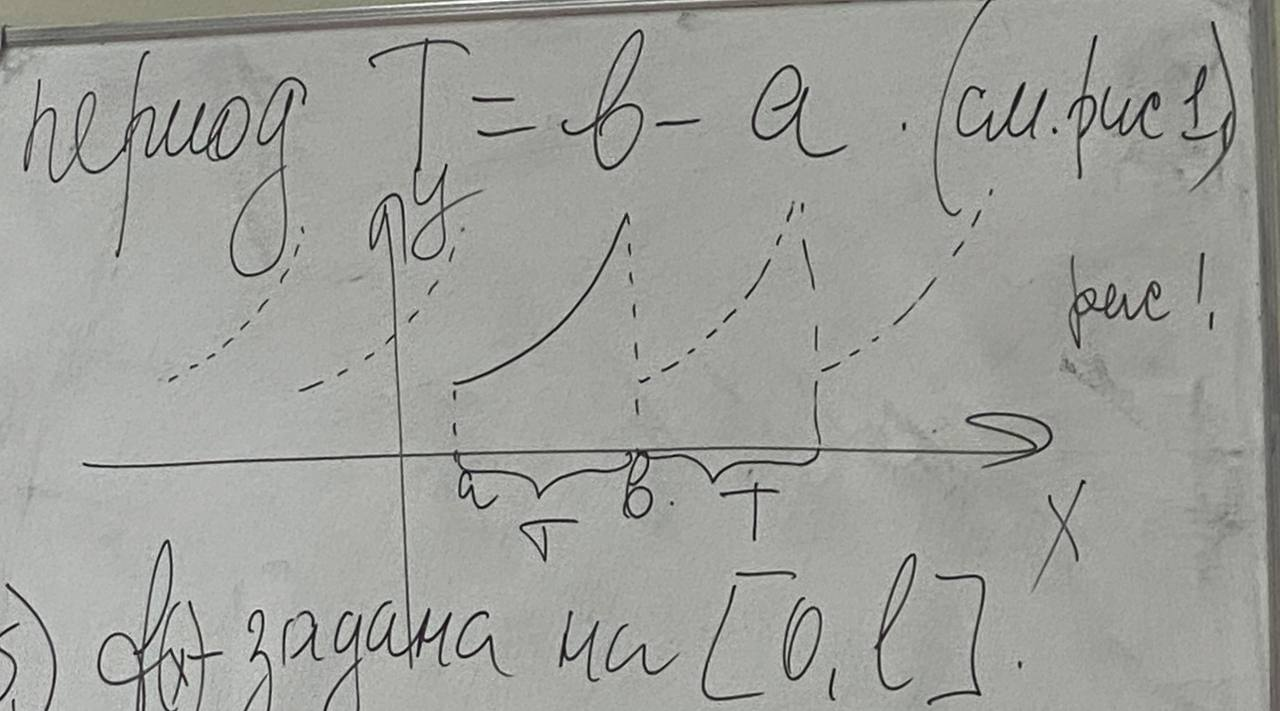 период T = b - a. (см. рис 1)
y
рис 1
a b. x
T T
б) f(x) задана на [0, l].